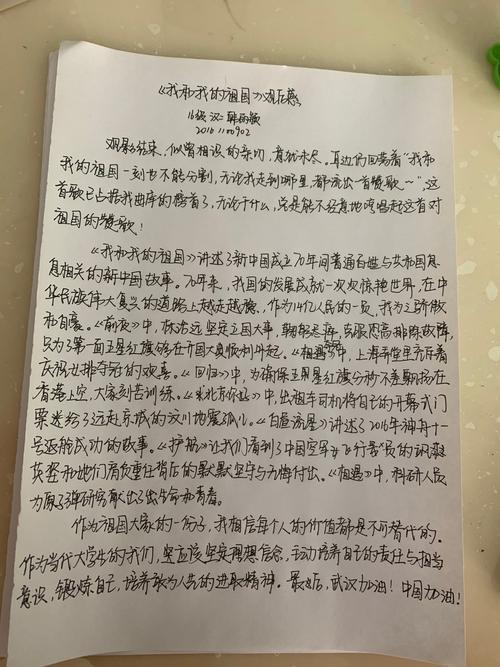 《我和我的祖国》观后感
16级 汉二
20161100902
观影结束，似曾相识的亲切，意犹未尽。耳边仍回荡着“我和
我的祖国一刻也不能分割，无论我走到哪里，都流出一首赞歌～”，这
首歌已占据我曲库的榜首了，无论干什么，总是能不经意地哼唱起这首对
祖国的赞歌！
《我和我的祖国》讲述了新中国成立70年间普通百姓与共和国息
息相关的新中国故事。70年来，我国的发展成就一次次惊艳世界，在中
华民族伟大复兴的道路上越走越稳，作为14亿人民的一员，我为之骄傲
和自豪。《前夜》中，林治远坚定立国大事，克服恐高排除故障，
只为了第一面五星红旗能够在开国大典顺利升起。《相遇》中，上海弄堂里充斥着
庆祝女排夺冠的欢喜。《回归》中，为确保五星红旗分秒不差飘扬在
香港上空，大家刻苦训练。《北京你好》中，出租车司机将自己的开幕式门
票送给了远赴京城的汶川地震孤儿。《白昼流星》讲述了2016年神舟十一
号返舱成功的故事。《护航》让我们看到了中国空军女飞行员的飒爽
英姿和她们肩负重任背后的默默坚守与无悔付出。《相遇》中，科研人员
为原子弹研究献出了生命和青春。
作为祖国大家的一份子，我相信每个人的价值都是不可替代的。
作为当代大学生的我们，坚定理想信念，主动培养自己的责任与担当
意识，锻炼自己，培养敢为人先的进取精神。最后，武汉加油！中国加油！